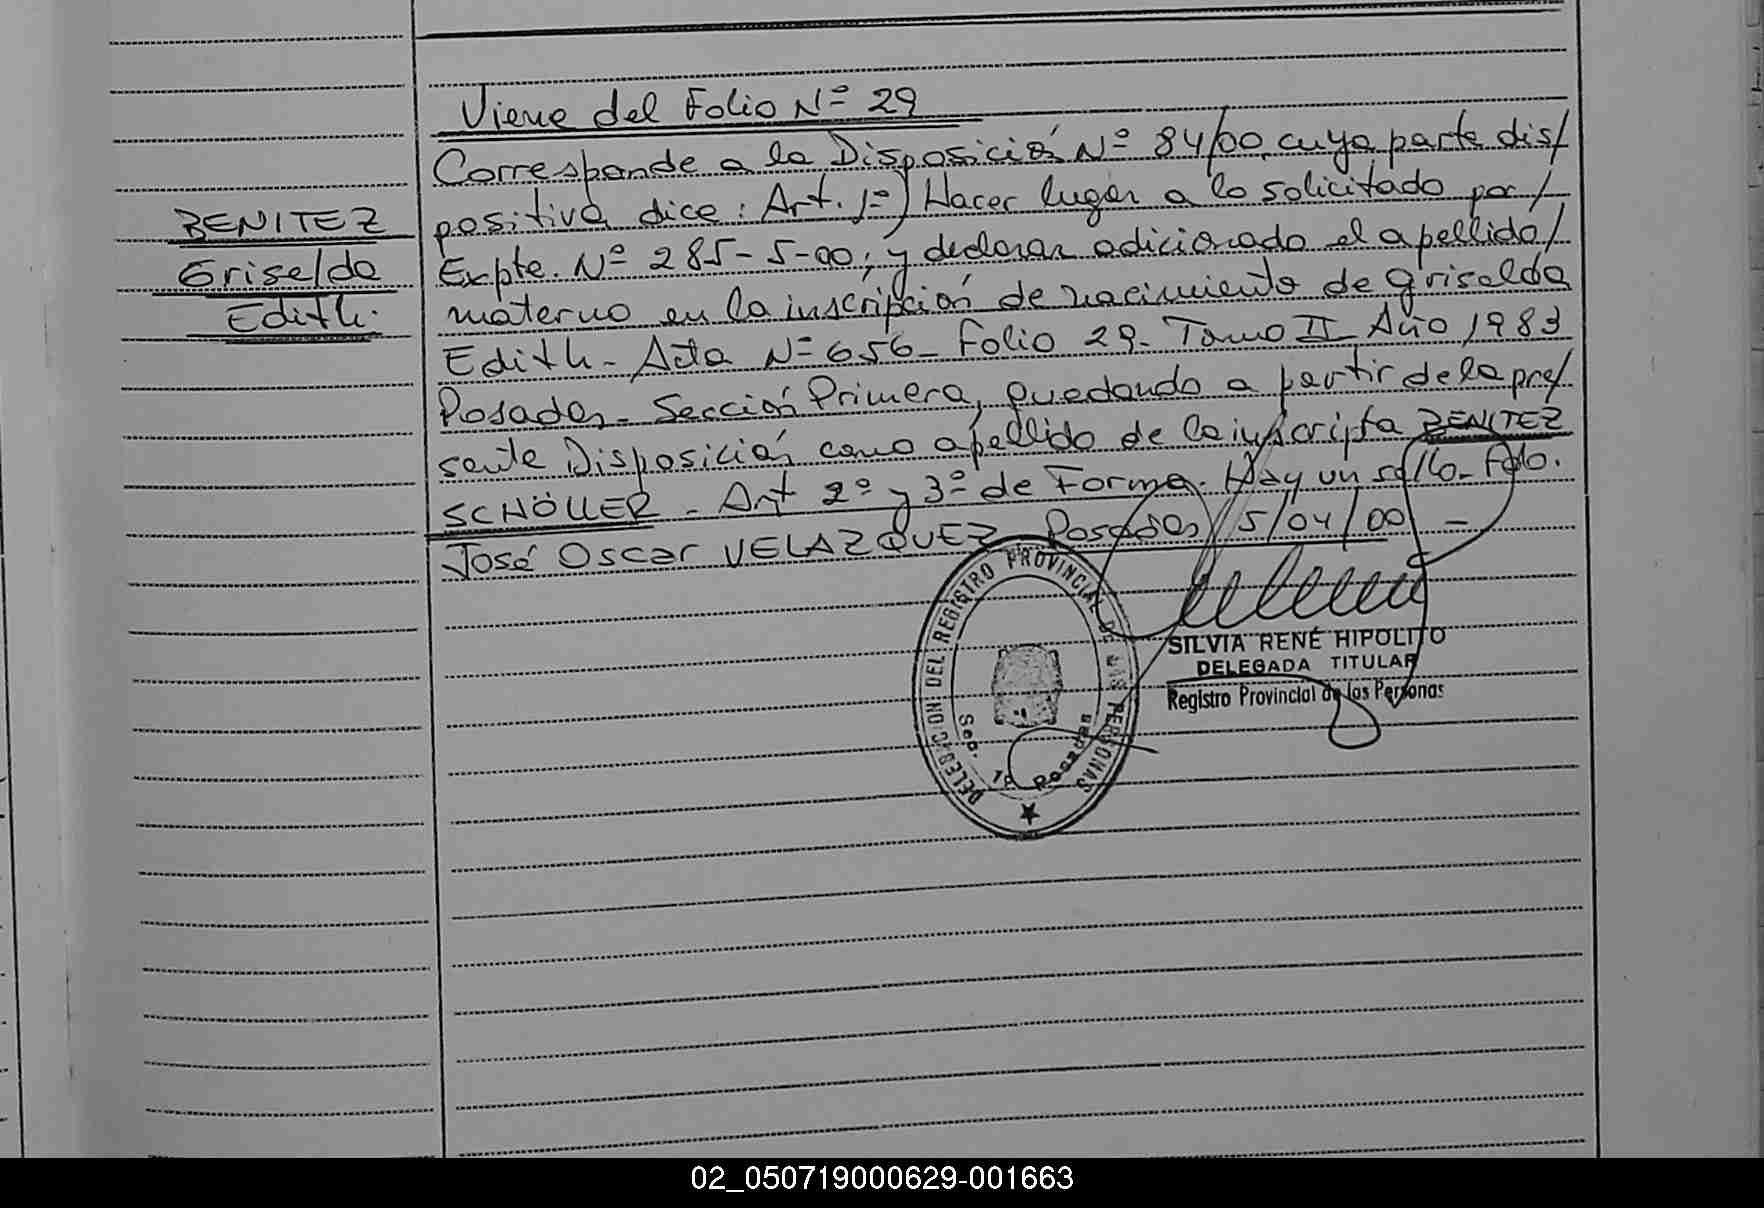 Viene del Folio Nº 29
Corresponde a la Disposición Nº 84/00, cuya parte dis/
positiva dice: Art. 1º) Hacer lugar a lo solicitado por/
BENITEZ
Expte. Nº 285-5-00; y declarar adicionado el apellido/
Griselda
materno en la inscripción de nacimiento de Griselda
Edith.
Edith - Acta Nº 656 - Folio 29 - Tomo II Año 1983
Posadas - Sección Primera, quedando a partir de la pre/
sente Disposición como apellido de la inscripta BENITEZ
SCHÖLLER - Art 2º y 3º de Forma. Hay un sello - Fdo.
José Oscar VELAZQUEZ Posadas 5/04/00 -
DELEGACION DEL REGISTRO PROVINCIAL DE LAS PERSONAS
Sec. 1ª Posadas
SILVIA RENÉ HIPOLITO
DELEGADA TITULAR
Registro Provincial de las Personas
02_050719000629-001663